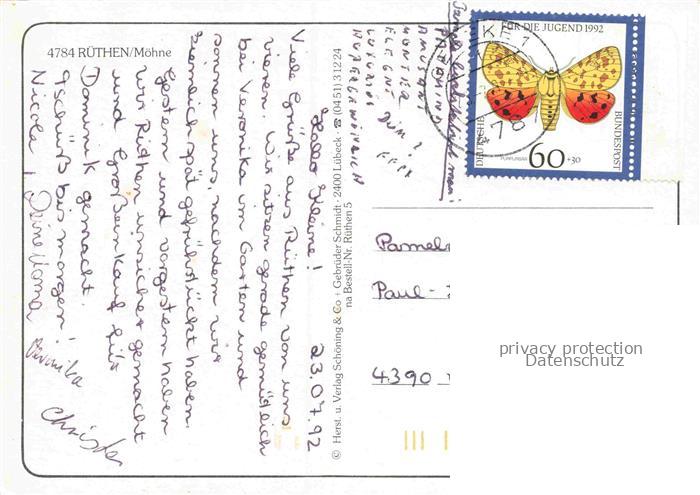 4784 RÜTHEN/Möhne
Hallo Kleine! 23.07.92
Viele Grüße aus Rüthen von uns
vieren. Wir sitzen gerade gemütlich
bei Veronika im Garten und
sonnen uns, nachdem wir
ziemlich spät gefrühstückt haben.
Gestern und vorgestern haben
wir Rüthen unsicher gemacht
und Großeinkauf für
Dominik gemacht.
Tschüß bis morgen!
Nicole, Deine Mama
Veronika
Christa
© Herst. u. Verlag Schöning & Co + Gebrüder Schmidt · 2400 Lübeck · ☎ (0451) 31224
na Bestell-Nr. Rüthen 5
FÜR DIE JUGEND 1992
DEUTSCHE
BUNDESPOST
60+30
478
Pamel
Paul-
4390
privacy protection
Datenschutz